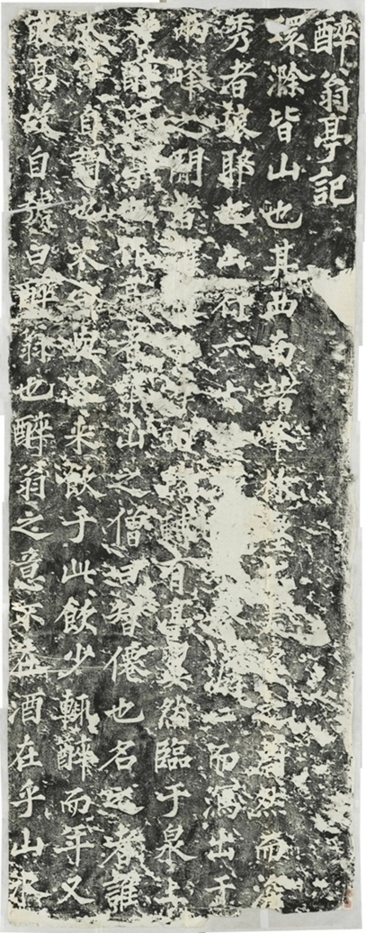 醉翁亭記
環滁皆山也其西南諸峰林壑之蔚然而深
秀者琅耶也山行六而瀉出于
峰之間者有亭翼然臨于泉上
醉亭也作亭者山之僧曰智僊也名之者誰
太守自謂也太守與客來飲于此飲少輒醉而年又
最高故自號曰醉翁也醉翁之意不在酒在乎山水